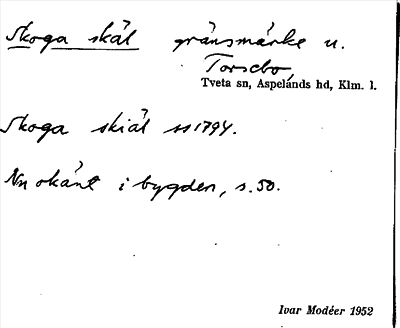 Skoga skäl gränsmärke u.
Torsebo
Tveta sn, Aspelands hd, Klm. l.
Skoga skiäl ss 1794.
Nu okänt i bygden, s. 50.
Ivar Modéer 1952